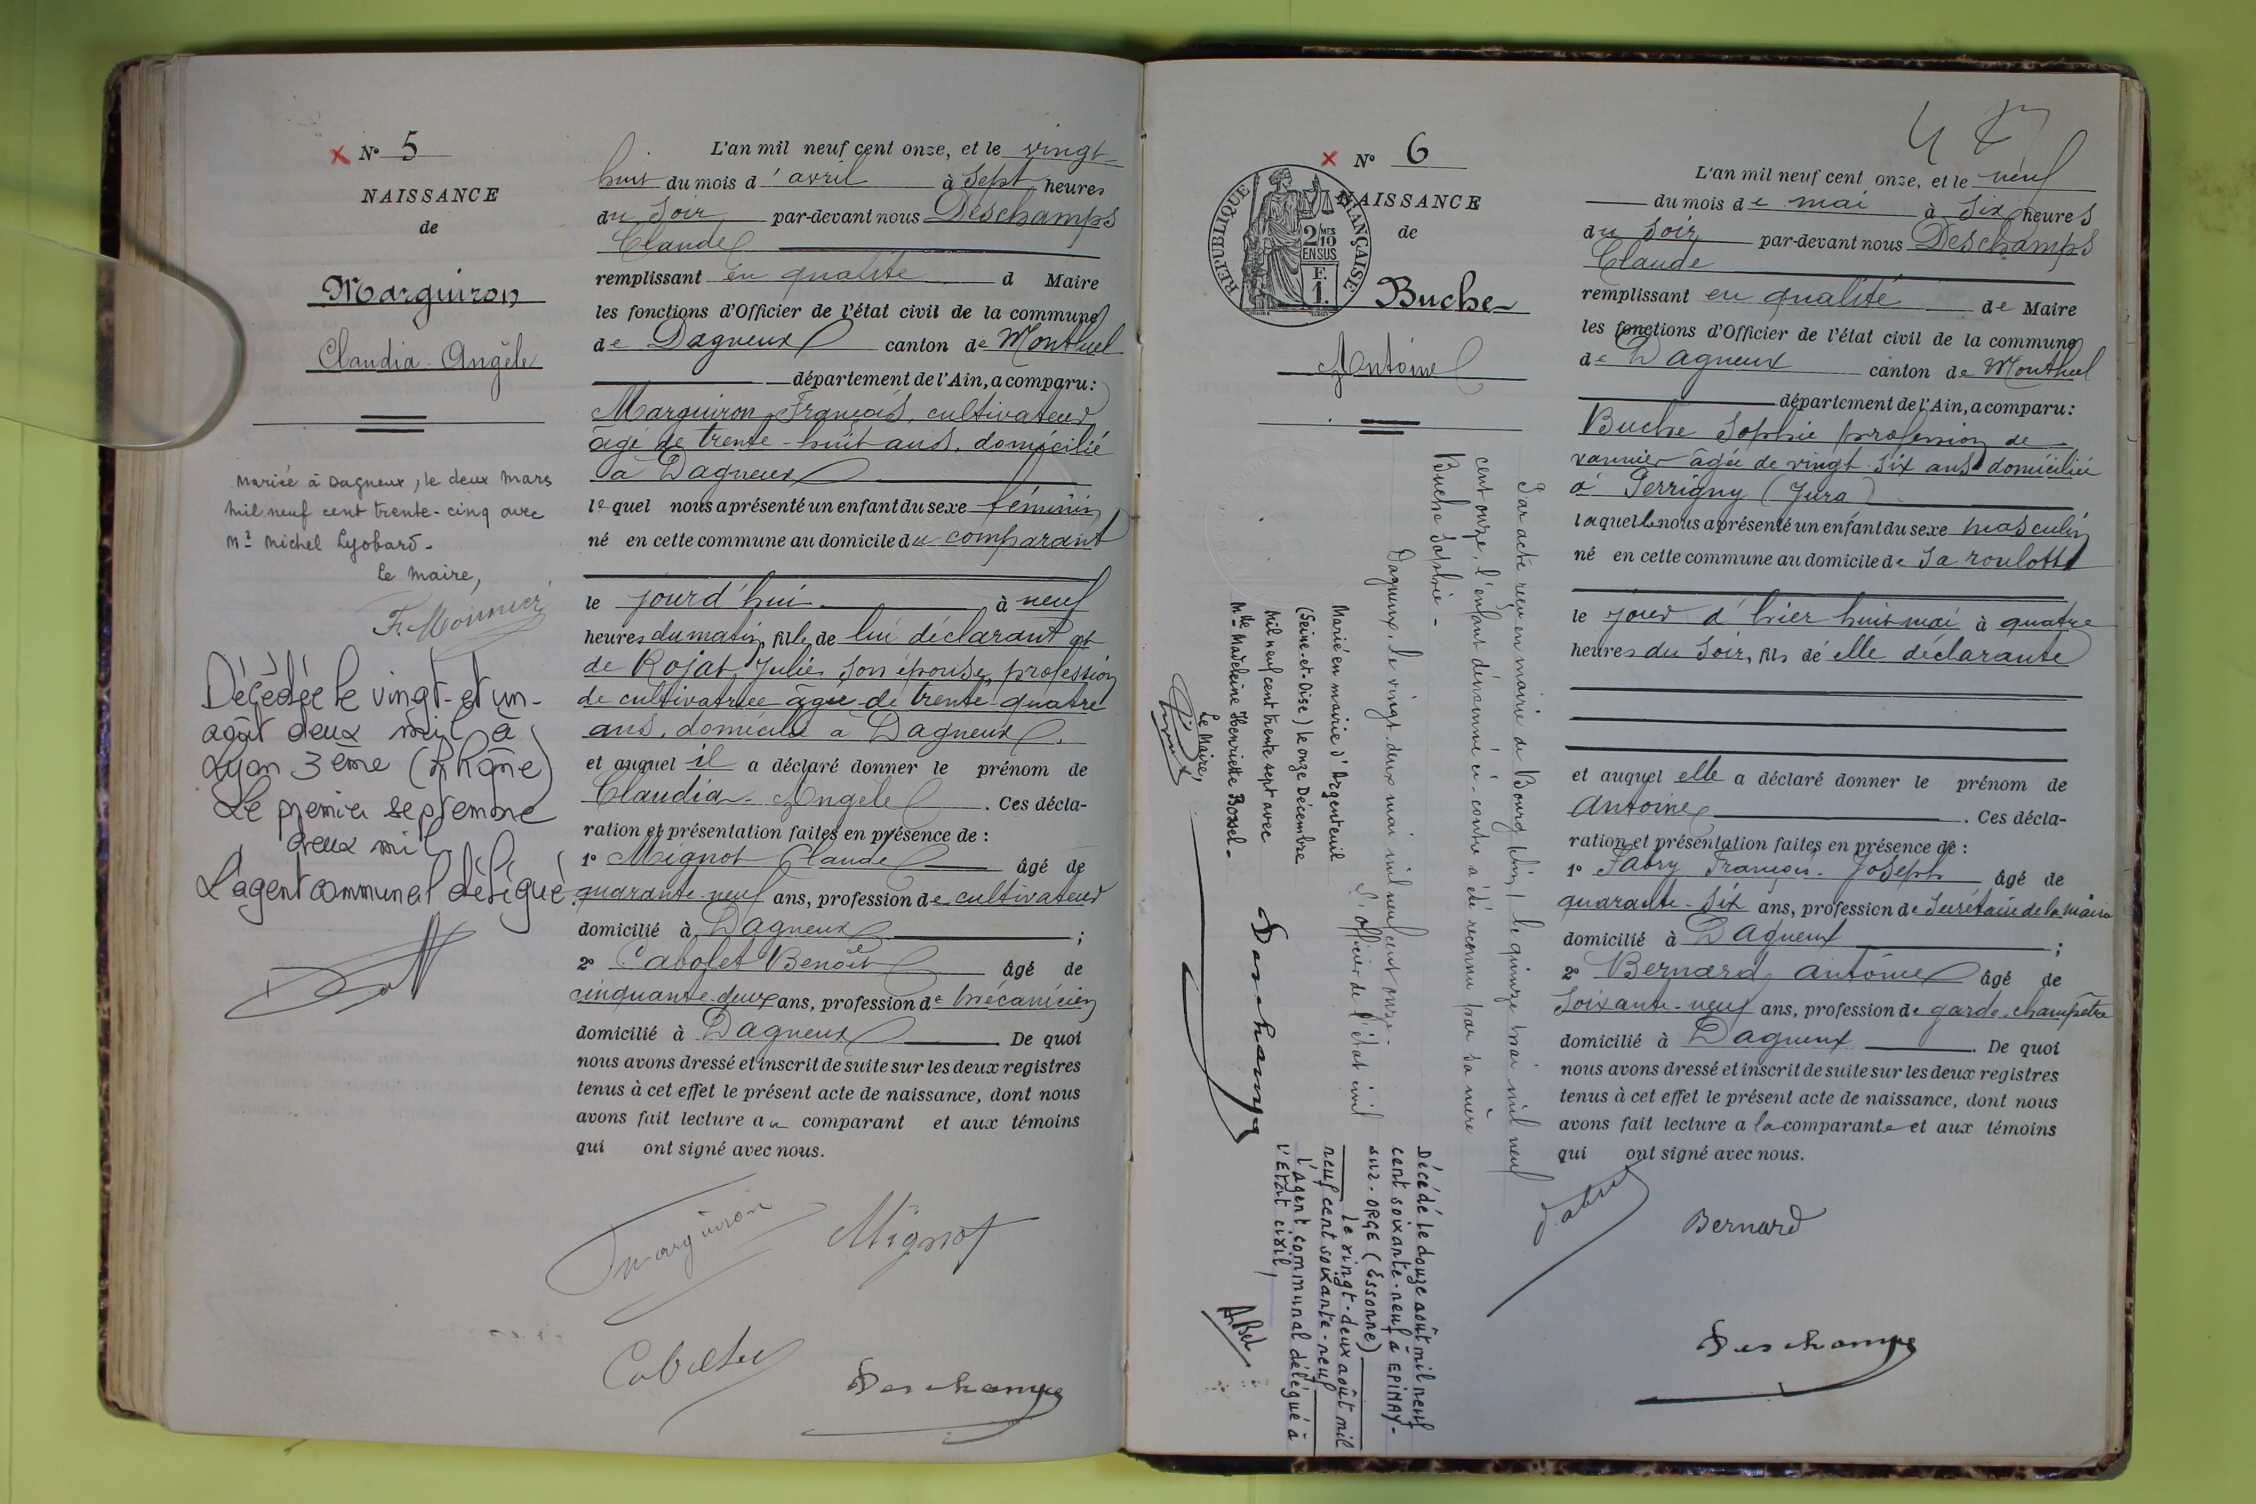 N° 5
NAISSANCE
de
Marguiron
Claudia-Angèle
Mariée à Dagneux, le deux Mars
mil neuf cent trente-cinq avec
Mr Michel Lyobard-
Le Maire,
F. Monnier
Décédée le vingt-et-un
août deux mil à
Lyon 3ème (Rhône)
Le premier septembre
deux mil
L'agent communal délégué
L'an mil neuf cent onze, et le vingt-
huit du mois d'avril à sept heures
du soir par-devant nous Deschamps
Claude
remplissant en qualité d Maire
les fonctions d'Officier de l'état civil de la commune
de Dagneux canton de Montluel
département de l'Ain, a comparu:
Marguiron François, cultivateur
âgé de trente-huit ans, domicilié
à Dagneux
lequel nous a présenté un enfant du sexe féminin
né en cette commune au domicile du comparant
le jourd'hui à neuf
heures du matin, fille de lui déclarant et
de Rojat Julie, son épouse, profession
de cultivatrice âgée de trente-quatre
ans, domiciliée à Dagneux
et auquel il a déclaré donner le prénom de
Claudia-Angèle. Ces décla-
ration et présentation faites en présence de:
1° Mignot Claude âgé de
quarante-neuf ans, profession de cultivateur
domicilié à Dagneux;
2° Cabolet Benoît âgé de
cinquante-deux ans, profession de mécanicien
domicilié à Dagneux. De quoi
nous avons dressé et inscrit de suite sur les deux registres
tenus à cet effet le présent acte de naissance, dont nous
avons fait lecture au comparant et aux témoins
qui ont signé avec nous.
Marguiron
Mignot
Cabolet
Deschamps
N° 6
NAISSANCE
de
RÉPUBLIQUE FRANÇAISE
2/10MES
EN SUS
F.
1.
Buche
Antoine
Par acte reçu en mairie de Bourg (Ain) le quinze mai mil neuf
cent onze, l'enfant dénommé ci-contre a été reconnu par sa mère
Buche Sophie-
Dagneux, le vingt-deux mai mil neuf cent onze.
L'officier de l'état civil
Deschamps
Marié en mairie d'Argenteuil
(Seine-et-Oise) le onze Décembre
mil neuf cent trente sept avec
Melle Madeleine Henriette Bossel-
Le Maire,
Décédé le douze août mil neuf
cent soixante-neuf à EPINAY-
sur-ORGE (Essonne)
Le vingt-deux août mil
neuf cent soixante-neuf
L'agent communal délégué à
l'Etat civil,
L'an mil neuf cent onze, et le neuf
du mois de mai à six heures
du soir par-devant nous Deschamps
Claude
remplissant en qualité de Maire
les fonctions d'Officier de l'état civil de la commune
de Dagneux canton de Montluel
département de l'Ain, a comparu:
Buche Sophie profession de
vannier âgée de vingt-six ans domiciliée
à Perrigny (Jura)
laquelle nous a présenté un enfant du sexe masculin
né en cette commune au domicile de sa roulotte
le jour d'hier huit mai à quatre
heures du soir, fils de elle déclarante
et auquel elle a déclaré donner le prénom de
Antoine. Ces décla-
ration et présentation faites en présence de:
1° Fabry François-Joseph âgé de
quarante-six ans, profession de Secrétaire de la Mairie
domicilié à Dagneux;
2° Bernard Antoine âgé de
soixante-neuf ans, profession de garde-champêtre
domicilié à Dagneux. De quoi
nous avons dressé et inscrit de suite sur les deux registres
tenus à cet effet le présent acte de naissance, dont nous
avons fait lecture a la comparante et aux témoins
qui ont signé avec nous.
Fabry
Bernard
Deschamps